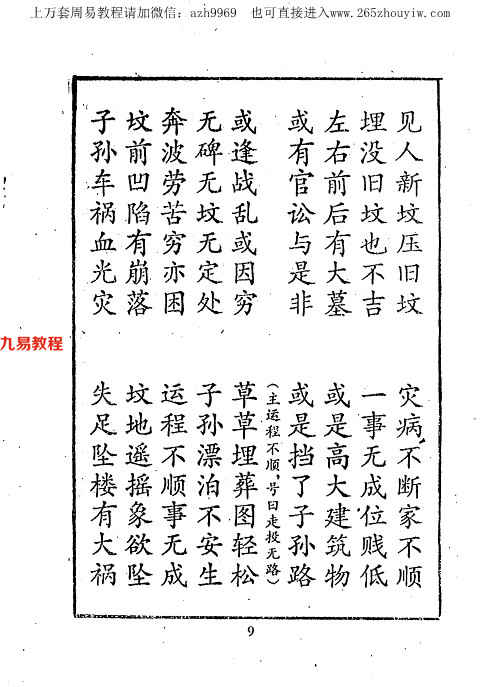 上万套周易教程请加微信：azh9969 也可直接进入www.265zhouyiw.com
见人新坟压旧坟 灾病不断家不顺
埋没旧坟也不吉 一事无成位贱低
左右前后有大墓 或是高大建筑物
或有官讼与是非 或是挡了子孙路
（主运程不顺，号曰走投无路）
或逢战乱或因穷 草草埋葬图轻松
无碑无坟无定处 子孙漂泊不安生
奔波劳苦穷亦困 运程不顺事无成
坟前凹陷有崩落 坟地遥摇象欲坠
子孙车祸血光灾 失足坠楼有大祸
九易教程
9